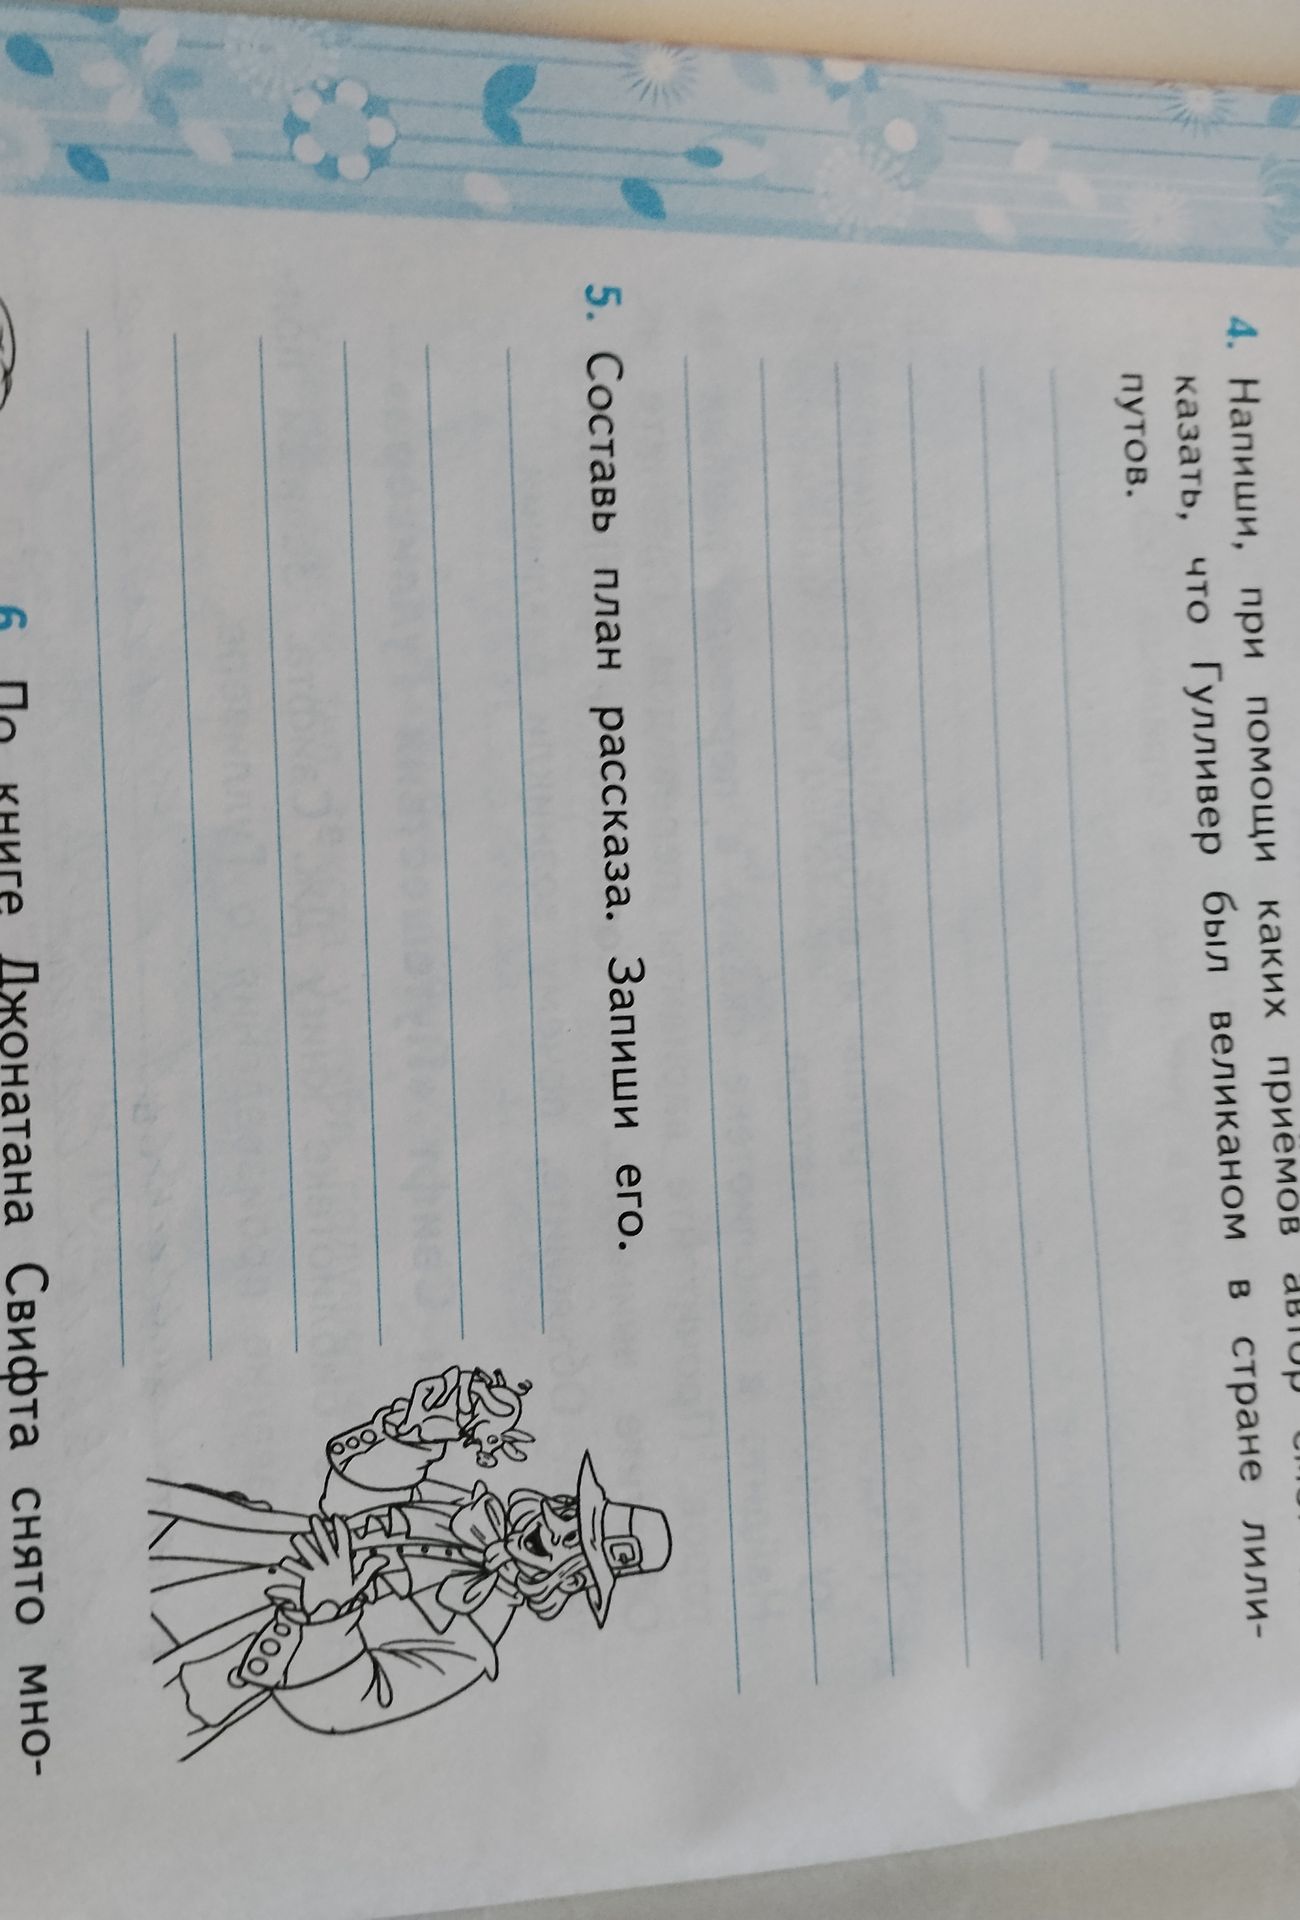 4. Напиши, при помощи каких приёмов автор
казать, что Гулливер был великаном в стране лили-
путов.
5. Составь план рассказа. Запиши его.
6 По книге Джонатана Свифта снято мно-